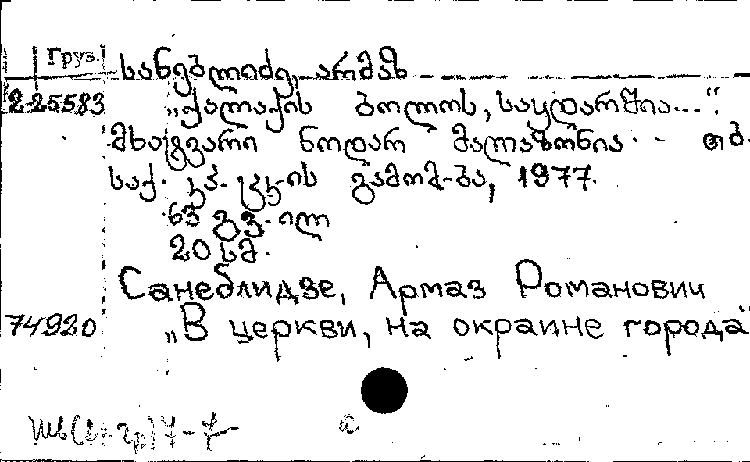 Груз.
სანებლიძე, არმაზ
2-25583
„ქალაქის ბოლოს, საყდარში...“.
მხატვარი ნოდარ მალაზონია. - თბ.
საქ. კპ ცკ-ის გამომ-ბა, 1977.
63 გვ. ილ
20 სმ.
Санеблидзе, Армаз Романович
74920
„В церкви, на окраине города“